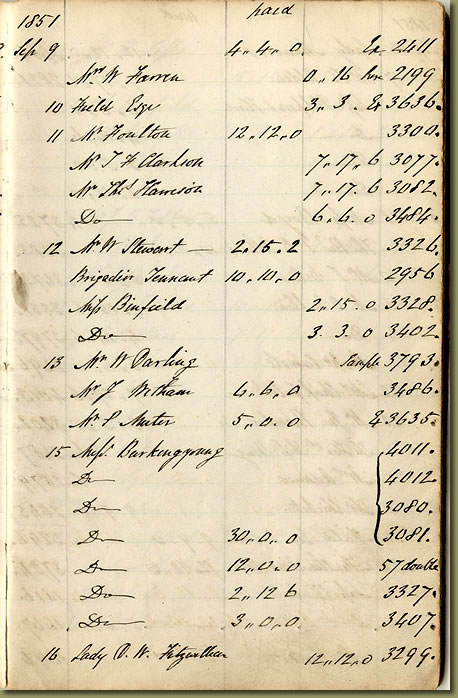 1851 paid
Sep 9 4,,4,,0. Ex 2411
Mr W Farren 0,,16 2199
10 Field Esqr 3,,3. Ex 3636.
11 Mr Foulton 12,,12,,0 3300.
Mr T H Clarkson 7,,17,,6 3077.
Mr Thos Harrison 7,,17.6 3082.
Do 6,,6.0 3484.
12 Mr W Stewart 2,,15.2 3326.
Brigadier Tennant 10,,10,,0 2956
Miss Binfield 2,,15.0 3328.
Do 3.3.0 3402.
13 Mr W Darling Sample 3793.
Mr J Witham 4,,6,,0 3486.
Mr S Muter 5,,0.0 3635.
15 Messrs Barkingyoung 4011.
Do 4012.
Do 3080.
Do 30,,0,,0 3081.
Do 12,,0,,0 57 double
Do 2,,12 6 3327.
Do 3,,0,,0. 3407.
16 Lady 12,,12,,0 3299.